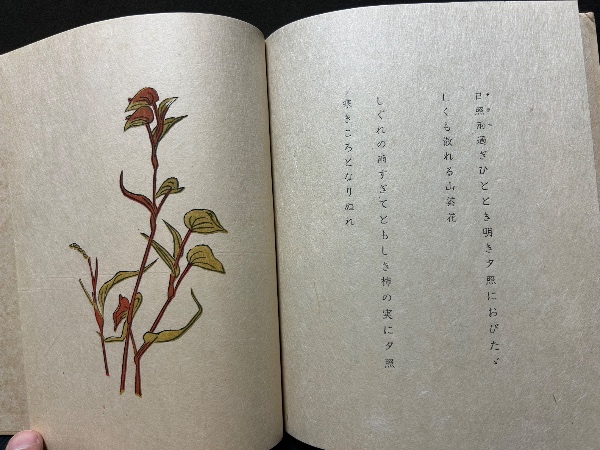 日照雨過ぎひととき明き夕照におびたゞ
しくも散れる山茶花
しぐれの雨すぎてともしき柿の実に夕照
寒きころとなりぬれ